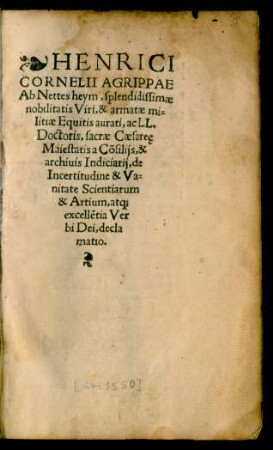 HENRICI
CORNELII AGRIPPAE
Ab Nettes heym, splendidissimæ
nobilitatis Viri, & armatæ mi-
litiæ Equitis aurati, ac LL.
Doctoris, sacræ Cæsareę
Maiestatis a Cõsilijs, &
archiuis Indiciarij, de
Incertitudine & Va-
nitate Scientiarum
& Artium, atq;
excellẽtia Ver
bi Dei, decla
matio.
[um 1550]